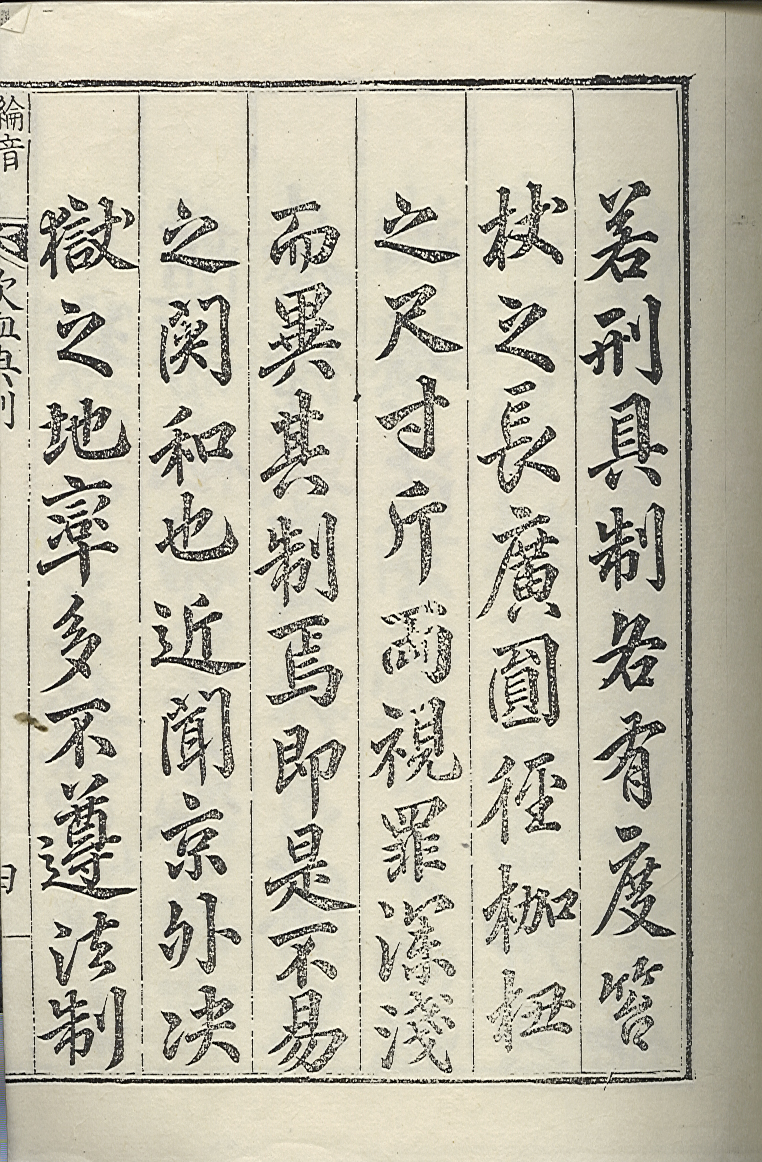 若刑具制各有度笞
杖之長廣圓徑枷杻
之尺寸斤兩視罪深淺
而異其制焉即是不易
之関和也近聞京外决
獄之地率多不遵法制
綸音
欽恤典則
四